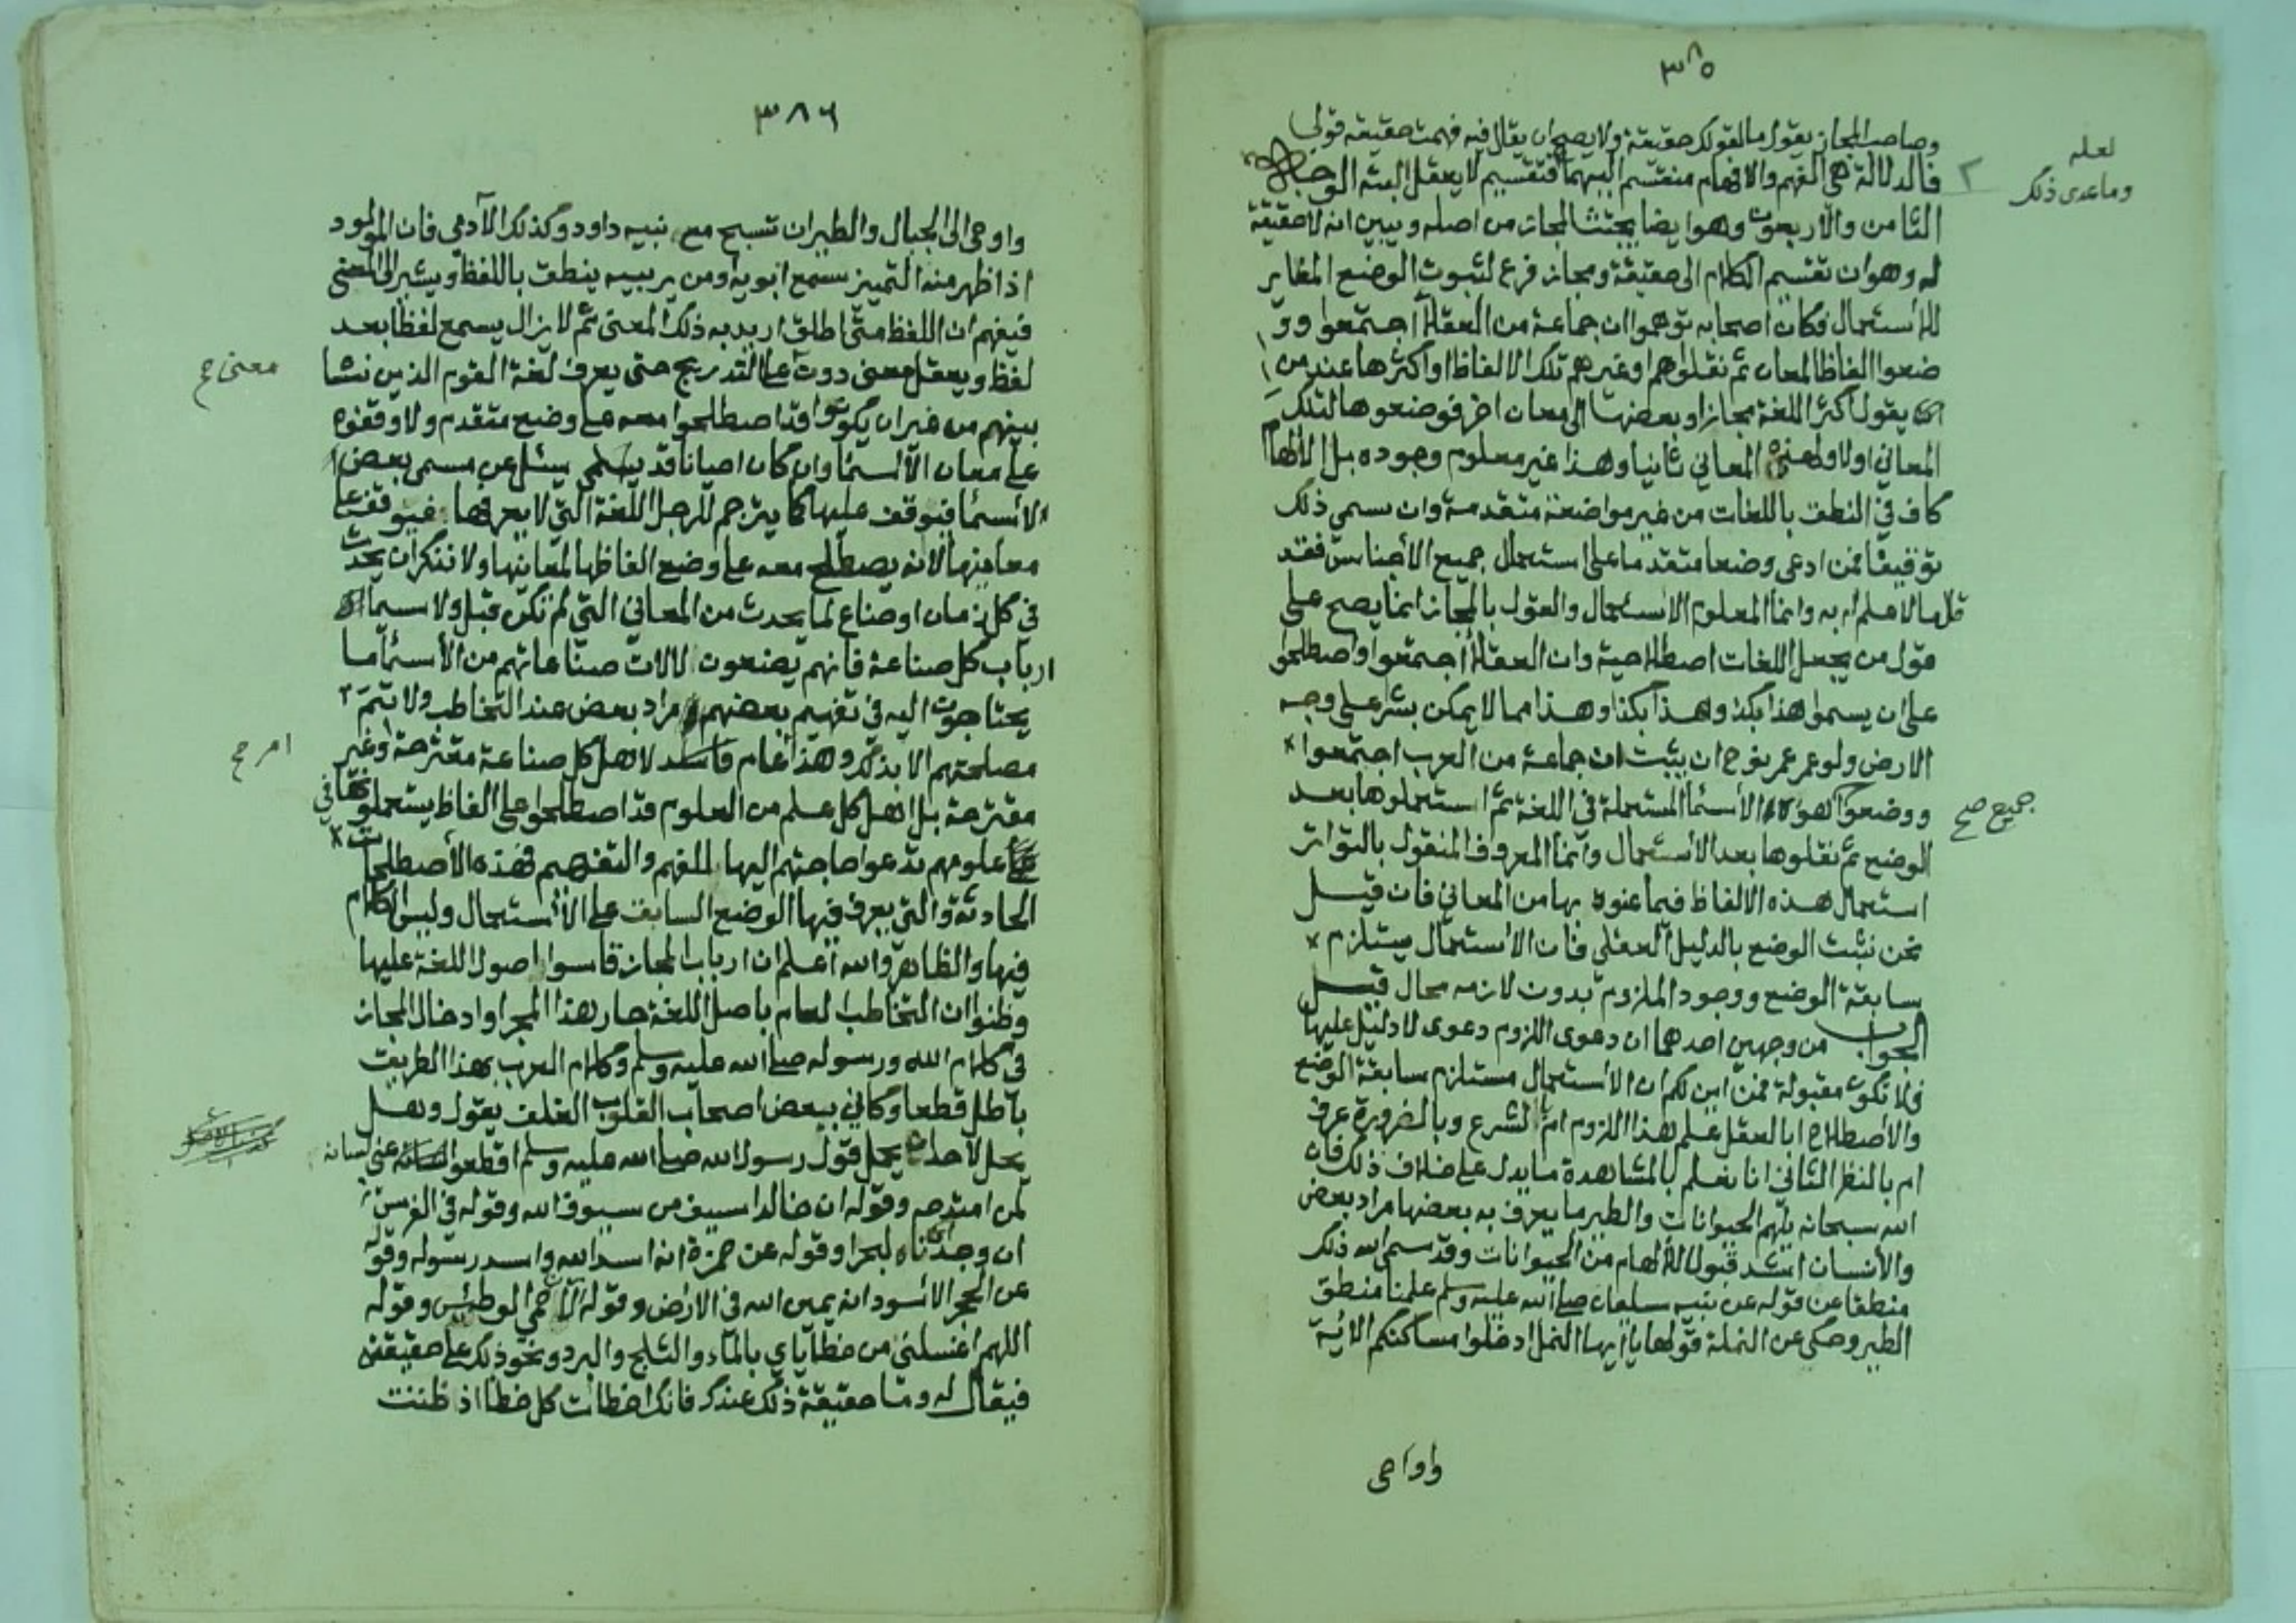 ٣٨٥
وصاحب المجاز يقول ما لقولك حقيقة ولا يصح ان يقال فيه فهمت حقيقة قولي
لعله
وماعدى ذلك
فالدلالة هي الفهم والافهام منقسم اليهما فتقسيم لا يعقل البتة الوجه
الثامن والاربعون وهو ايضا يجتث المجاز من اصله ويبين انه لا حقيقة
له وهو ان تقسيم الكلام الى حقيقة ومجاز فرع لثبوت الوضع المغاير
للاستعمال فكان اصحابه توهموا ان جماعة من العقلا اجتمعوا وو
ضعوا الفاظا لمعان ثم نقلوا هم او غيرهم تلك الالفاظ او اكثرها عند من
يقول اكثر اللغة مجاز او بعضها الى معان اخر فوضعوها لتلك
المعاني اولا ولهذه المعاني ثانيا وهذا غير معلوم وجوده بل الالهام
كاف في النطق باللغات من غير مواضعة متقدمة وان سمي ذلك
توقيفا فمن ادعى وضعا متقدما على استعمال جميع الاجناس فقد
قال ما لا علم له به وانما المعلوم الاستعمال والقول بالمجاز انما يصح على
قول من يجعل اللغات اصطلاحية وان العقلا اجتمعوا واصطلحوا
على ان يسموا هذا بكذا وهذا بكذا وهذا مما لا يمكن بشر على وجه
الارض ولو عمر عمر نوح ان يثبت ان جماعة من العرب اجتمعوا
ووضعوا لهؤلاء الاسما المستعملة في اللغة ثم استعملوها بعد
جميع صح
الوضع ثم نقلوها بعد الاستعمال وانما المعروف المنقول بالتواتر
استعمال هذه الالفاظ فيما عنوه بها من المعاني فان قيل
نحن نثبت الوضع بالدليل العقلي فان الاستعمال يستلزم
سابقة الوضع ووجود الملزوم بدون لازمه محال قيل
الجواب من وجهين احدهما ان دعوى اللزوم دعوى لا دليل عليها
فلا تكون مقبولة فمن اين لكم ان الاستعمال مستلزم سابقة الوضع
والاصطلاح ابالعقل علم هذا اللزوم ام بالشرع وبالضرورة عرف
ام بالنظر الثاني انا نعلم بالمشاهدة ما يدل على خلاف ذلك فان
الله سبحانه يلهم الحيوانات والطير ما يعرف به بعضها مراد بعض
والانسان اشد قبولا للالهام من الحيوانات وقد سمى الله ذلك
منطقا عن قوله عن نبيه سليمان صلى الله عليه وسلم علمنا منطق
الطير وحكى عن النملة قولها يا ايها النمل ادخلوا مساكنكم الاية
واوحى
٣٨٦
واوحى الى الجبال والطير ان تسبح مع نبيه داود وكذلك الآدمي فان المولود
اذا ظهر منه التمييز سمع ابويه ومن يربيه ينطق باللفظ ويشير الى المعنى
فيفهم ان اللفظ متى اطلق اريد به ذلك المعنى ثم لا يزال يسمع لفظا بعد
لفظ ويعقل معنى دون على التدريج حتى يعرف لغة القوم الذين نشا
معنى صح
بينهم من غير ان يكونوا قد اصطلحوا معه على وضع متقدم ولا وقفوه
على معان الاسما وان كان احيانا قد يسئل عن مسمى بعض
الاسما فيوقف عليها كما يترجم للرجل اللغة التي لا يعرفها فيوقف على
معانيها لا انه يصطلح معه على وضع الفاظها لمعانيها ولا ننكر ان يحدث
في كل زمان اوضاع لما يحدث من المعاني التي لم تكن قبل ولا سيما
ارباب كل صناعة فانهم يضعون لالات صناعاتهم من الاسما ما
يحتاجون اليه في تفهيم بعضهم مراد بعض عند التخاطب ولا تتم
مصلحتهم الا بذلك وهذا عام لاهل كل صناعة مقترحة وغير
امر صح
مقترحة بل اهل كل علم من العلوم قد اصطلحوا على الفاظ يستعملونها في
علومهم تدعوا حاجتهم اليها للفهم والتفهيم فهذه الاصطلحات
الحادثة والتي يعرف فيها الوضع السابق على الاستعمال وليس الكلام
فيها والظاهر والله اعلم ان ارباب المجاز قاسوا اصول اللغة عليها
وظنوا ان التخاطب لعام باصل اللغة جار هذا المجرا وادخال المجاز
في كلام الله ورسوله صلى الله عليه وسلم وكلام العرب بهذا الطريق
باطل قطعا وكاني ببعض اصحاب القلوب الغلف يقول وهل
يحل لاحد ان يحمل قول رسول الله صلى الله عليه وسلم اقطعوا عني لسانه
لمن امتدحه وقوله ان خالدا سيف من سيوف الله وقوله في الفرس
ان وجدناه لبحرا وقوله عن حمزة انه اسد الله واسد رسوله وقوله
عن الحجر الاسود انه يمين الله في الارض وقوله الان حمي الوطيس وقوله
اللهم اغسلني من خطاياي بالماء والثلج والبرد ونحو ذلك على حقيقته
فيقال له وما حقيقة ذلك عندك فانك اخطات كل خطا اذ ظننت